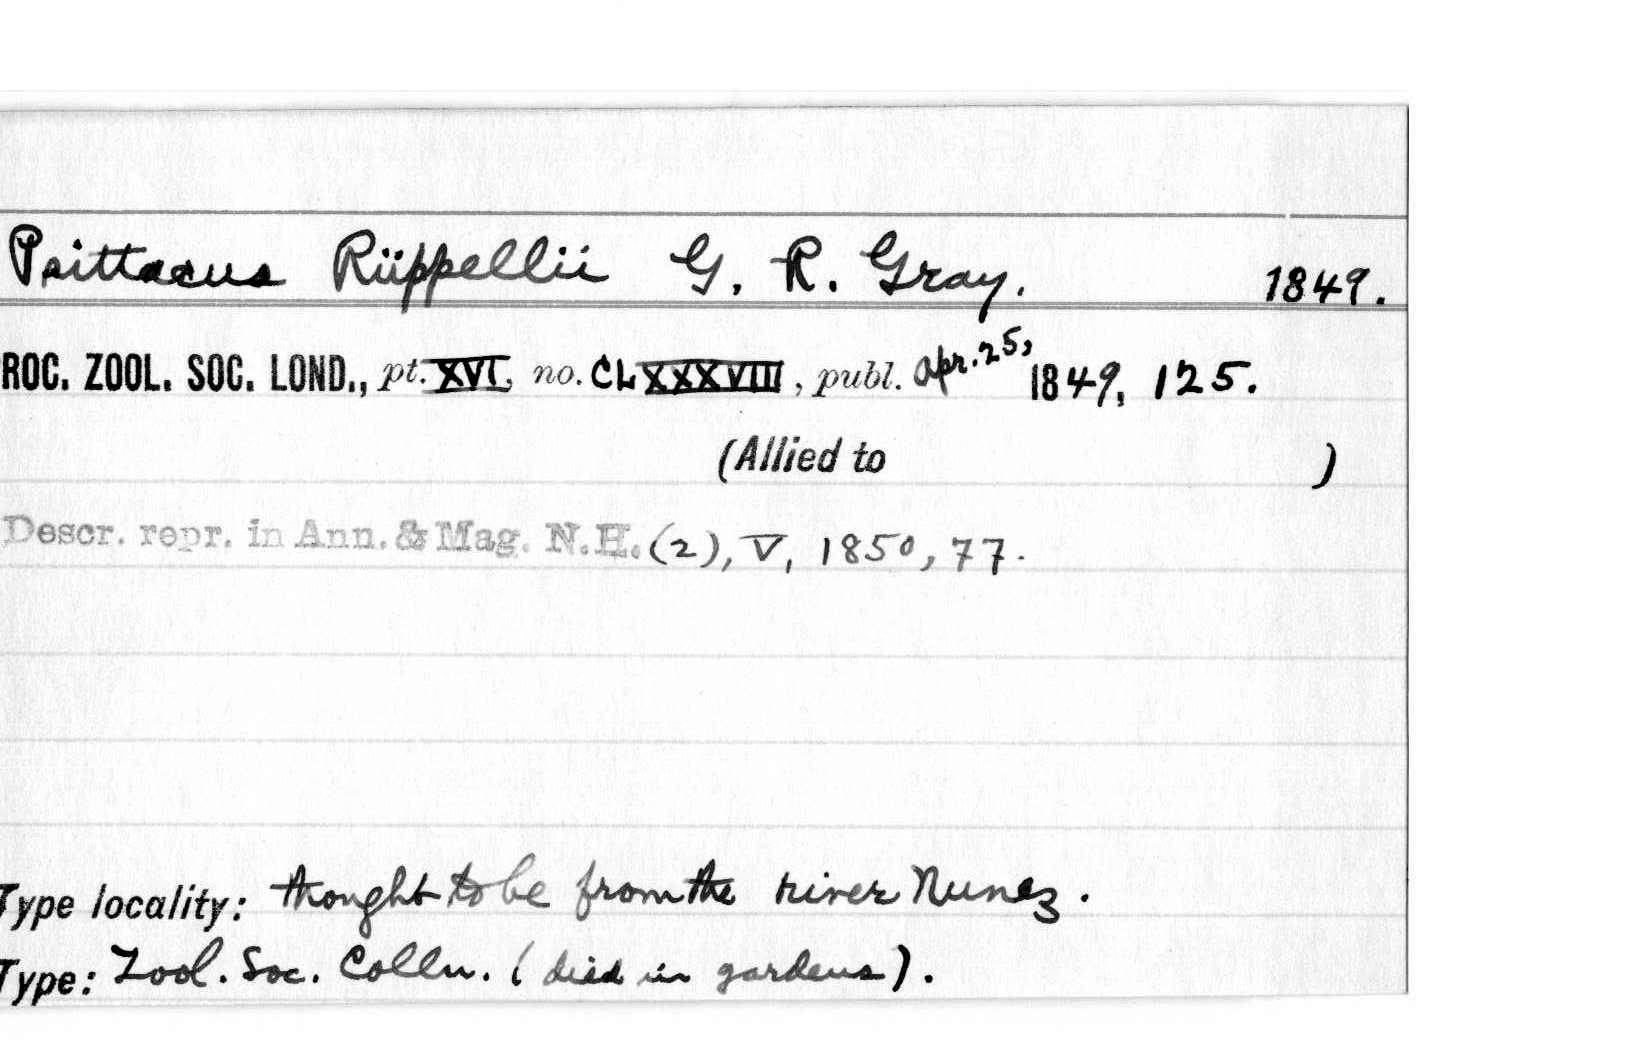 Psittacus Rüppellii G. R. Gray. 1849.
ROC. ZOOL. SOC. LOND., pt. XVI, no. CLXXXVIII, publ. Apr. 25, 1849, 125.
(Allied to )
Descr. repr. in Ann. & Mag. N.H. (2), V, 1850, 77.
Type locality: thought to be from the river Nunez.
Type: Zool. Soc. Colln. (died in gardens).